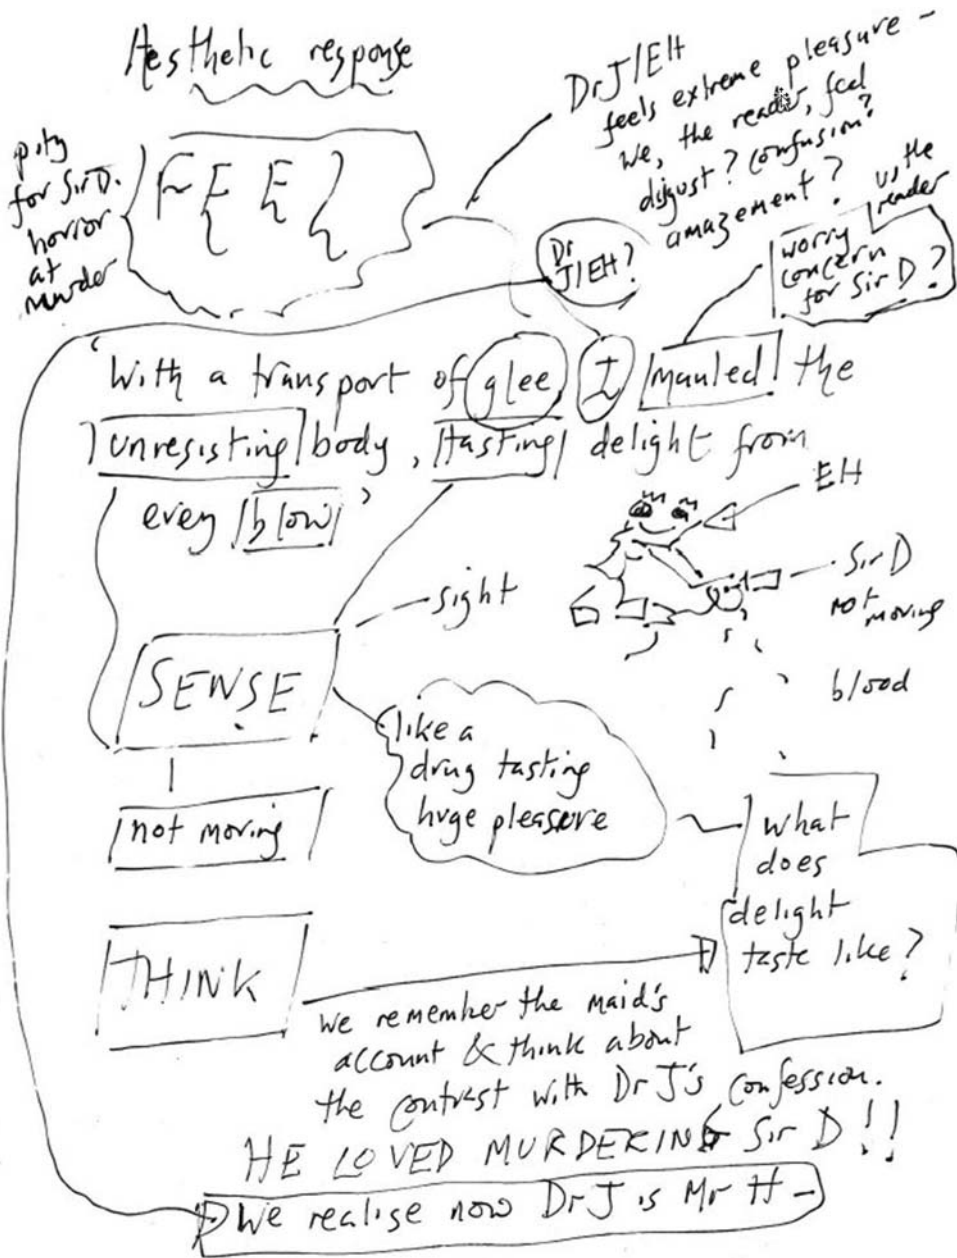 Aesthetic response
Dr J/EH
feels extreme pleasure -
We, the reader, feel
disgust? confusion?
amazement?
pity
for Sir D.
horror
at
murder
FEEL
Dr
J/EH?
us the
reader
worry
concern
for Sir D?
With a transport of glee, I mauled the
unresisting body, tasting delight from
every blow'
EH
Sir D
not
moving
blood
sight
SENSE
like a
drug tasting
huge pleasure
not moving
what
does
delight
taste like?
THINK
we remember the maid's
account & think about
the contrast with Dr J's confession.
HE LOVED MURDERING Sir D!!
We realise now Dr J is Mr H -